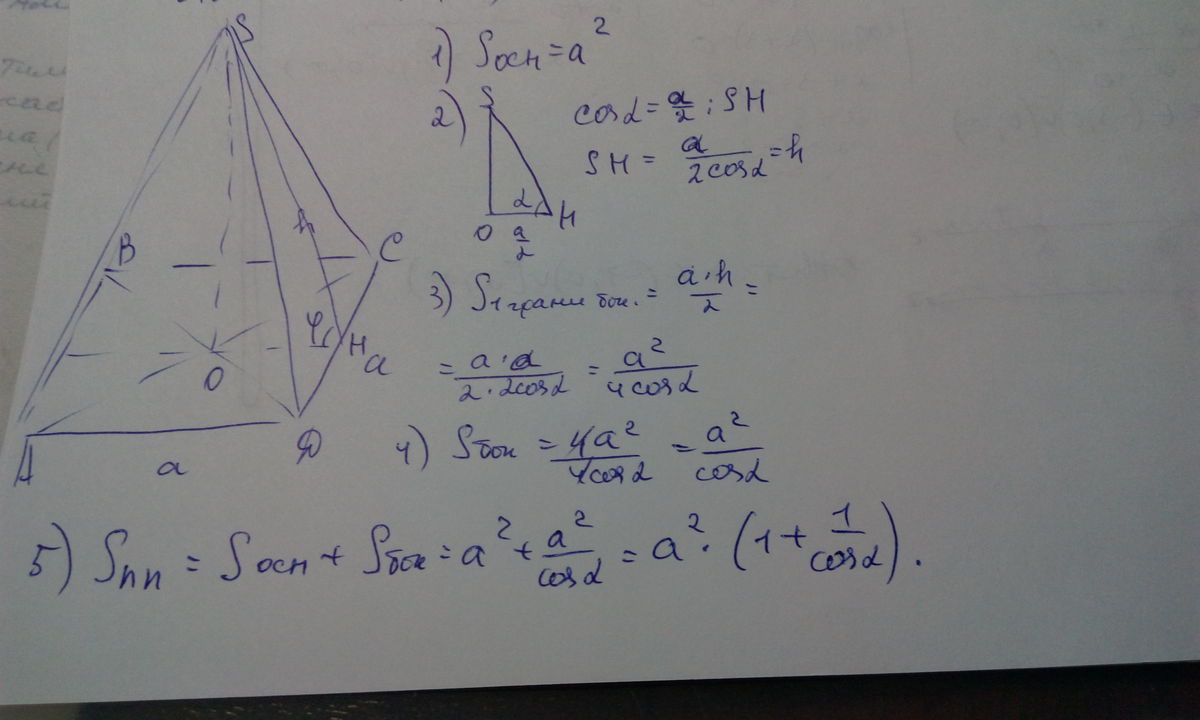 S
B
C
h
φ
H
a
O
A
D
a
1) Sосн = a²
2) S
cosα = a/2 : SH
SH = a/(2cosα) = h
α
O a/2 H
3) S1грани бок. = (a·h)/2 =
= (a·a)/(2·2cosα) = a²/(4cosα)
4) Sбок = 4a²/(4cosα) = a²/cosα
5) Sпп = Sосн + Sбок = a² + a²/cosα = a²·(1 + 1/cosα).